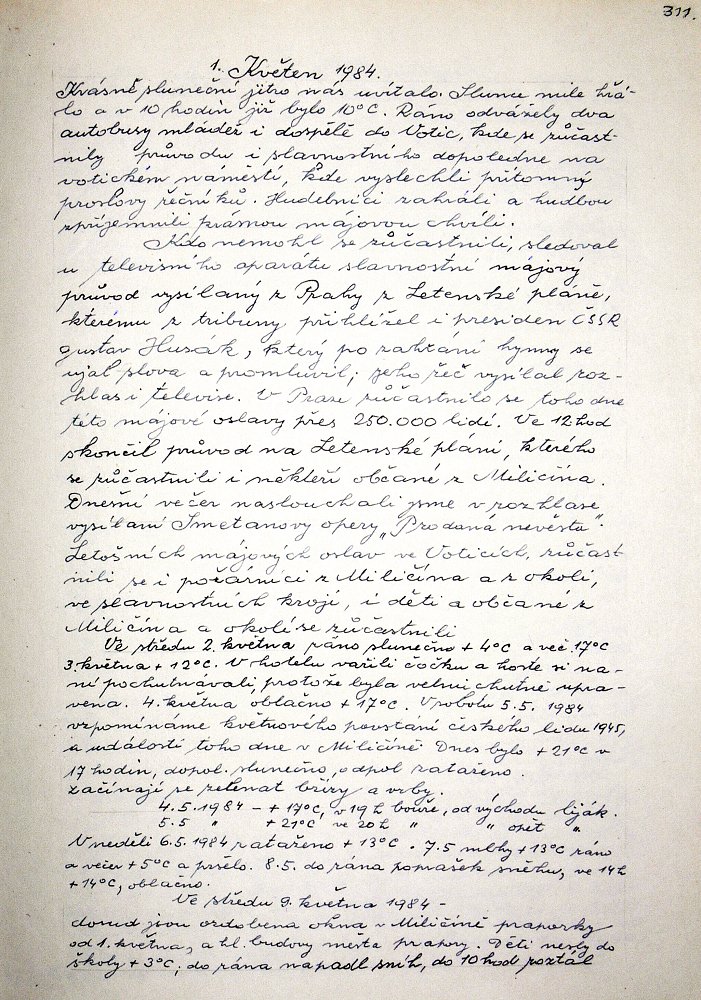 311.
1. Květen 1984.
Krásné sluneční jitro nás uvítalo. Slunce mile hřá-
lo a v 10 hodin již bylo 10°C. Ráno odvážely dva
autobusy mládež i dospělé do Votic, kde se zúčast-
nily průvodu i slavnostního dopoledne na
votickém náměstí, kde vyslechli přítomný
proslovy řečníků. Hudebníci zahráli a hudbou
zpříjemnili krásnou májovou chvíli.
Kdo nemohl se zúčastnili, sledoval
u televisního aparátu slavnostní májový
průvod vysílaný z Prahy z Letenské pláně,
kterému z tribuny přihlížel i presiden ČSSR
Gustav Husák, který po zahrání hymny se
ujal slova a promluvil; jeho řeč vysílal roz-
hlas i televise. V Praze zúčastnilo se toho dne
této májové oslavy přes 250.000 lidí. Ve 12. hod
skončil průvod na Letenské pláni, kterého
se zúčastnili i někteří občané z Miličína.
Dnešní večer naslouchali jsme v rozhlase
vysílaní Smetanovy opery „Prodaná nevěsta".
Letošních májových oslav ve Voticích, zúčast-
nili se i požárníci z Miličína a z okolí,
ve slavnostních kroji, i děti a občané z
Miličína a okolí se zúčastnili
Ve středu 2. května ráno slunečno + 4°C a več. 17°C
3. května + 12°C. V hotelu vařili čočku a hosté si na-
ní pochutnávali, protože byla velmi chutně upra-
vena. 4. května oblačno + 17°C. V sobotu 5.5. 1984
vzpomínáme květnového povstání českého lidu 1945,
a události toho dne v Miličíně. Dnes bylo + 21°C v
17 hodin, dopol. slunečno, odpol zataženo.
Začínají se zelenat břízy a vrby.
4.5.1984 - + 17°C, v 19 h bouře, od východu liják.
5.5 " + 21°C ve 20 h " " opět "
V neděli 6.5.1984 zataženo + 13°C. 7.5 mlhy +13°C ráno
a večer + 5°C a pršelo. 8.5. do rána poprašek sněhu, ve 14 h
+ 14°C, oblačno.
Ve středu 9. května 1984 -
dosud jsou ozdobena okna v Miličíně praporky
od 1. května, a hl. budovy města prapory. Děti nesly do
školy + 3°C, do rána napadl sníh, do 10 hod roztál